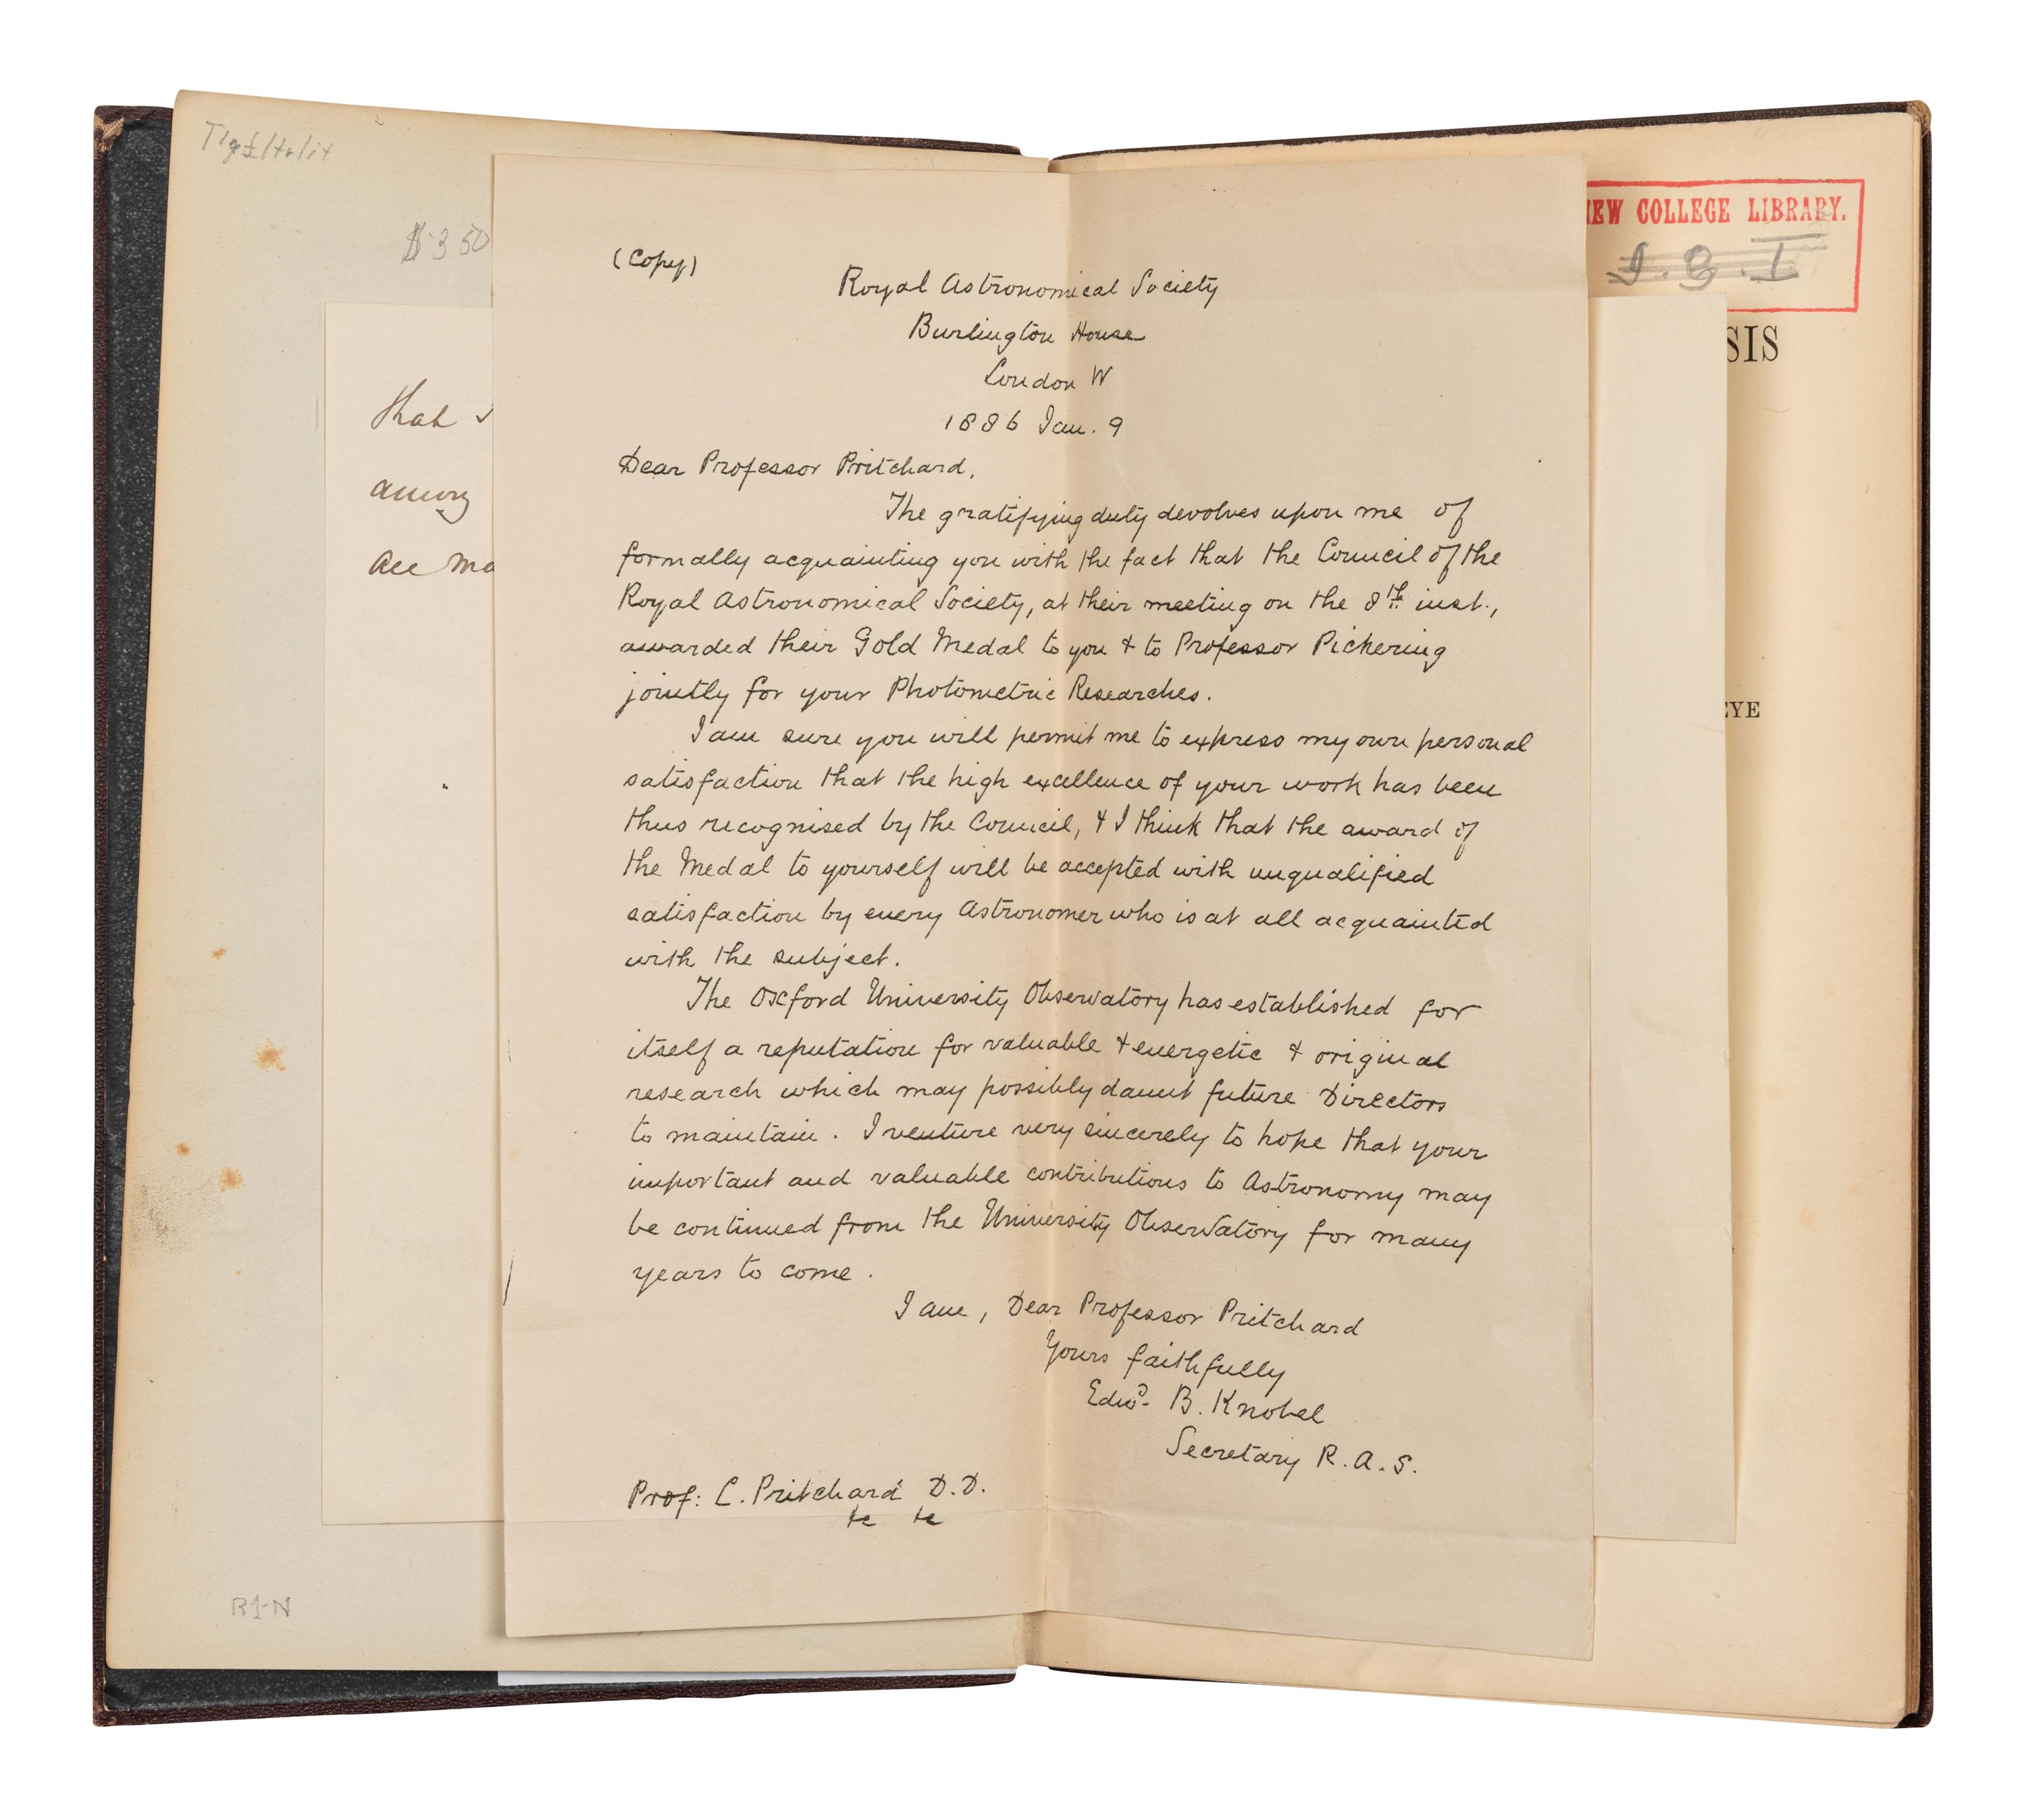 $350
that
among
are
(Copy)
Royal Astronomical Society
Burlington House
London W
1886 Jan. 9
Dear Professor Pritchard,
The gratifying duty devolves upon me of
formally acquainting you with the fact that the Council of the
Royal Astronomical Society, at their meeting on the 8th inst.,
awarded their Gold Medal to you & to Professor Pickering
jointly for your Photometric Researches.
I am sure you will permit me to express my own personal
satisfaction that the high excellence of your work has been
thus recognised by the Council, & I think that the award of
the Medal to yourself will be accepted with unqualified
satisfaction by every Astronomer who is at all acquainted
with the subject.
The Oxford University Observatory has established for
itself a reputation for valuable & energetic & original
research which may possibly daunt future Directors
to maintain. I venture very sincerely to hope that your
important and valuable contributions to Astronomy may
be continued from the University Observatory for many
years to come.
I am, Dear Professor Pritchard
Yours faithfully
Edwd. B. Knobel
Secretary R.A.S.
Prof: C. Pritchard D.D.
&c &c
B1-N
NEW COLLEGE LIBRARY.
SIS
EYE